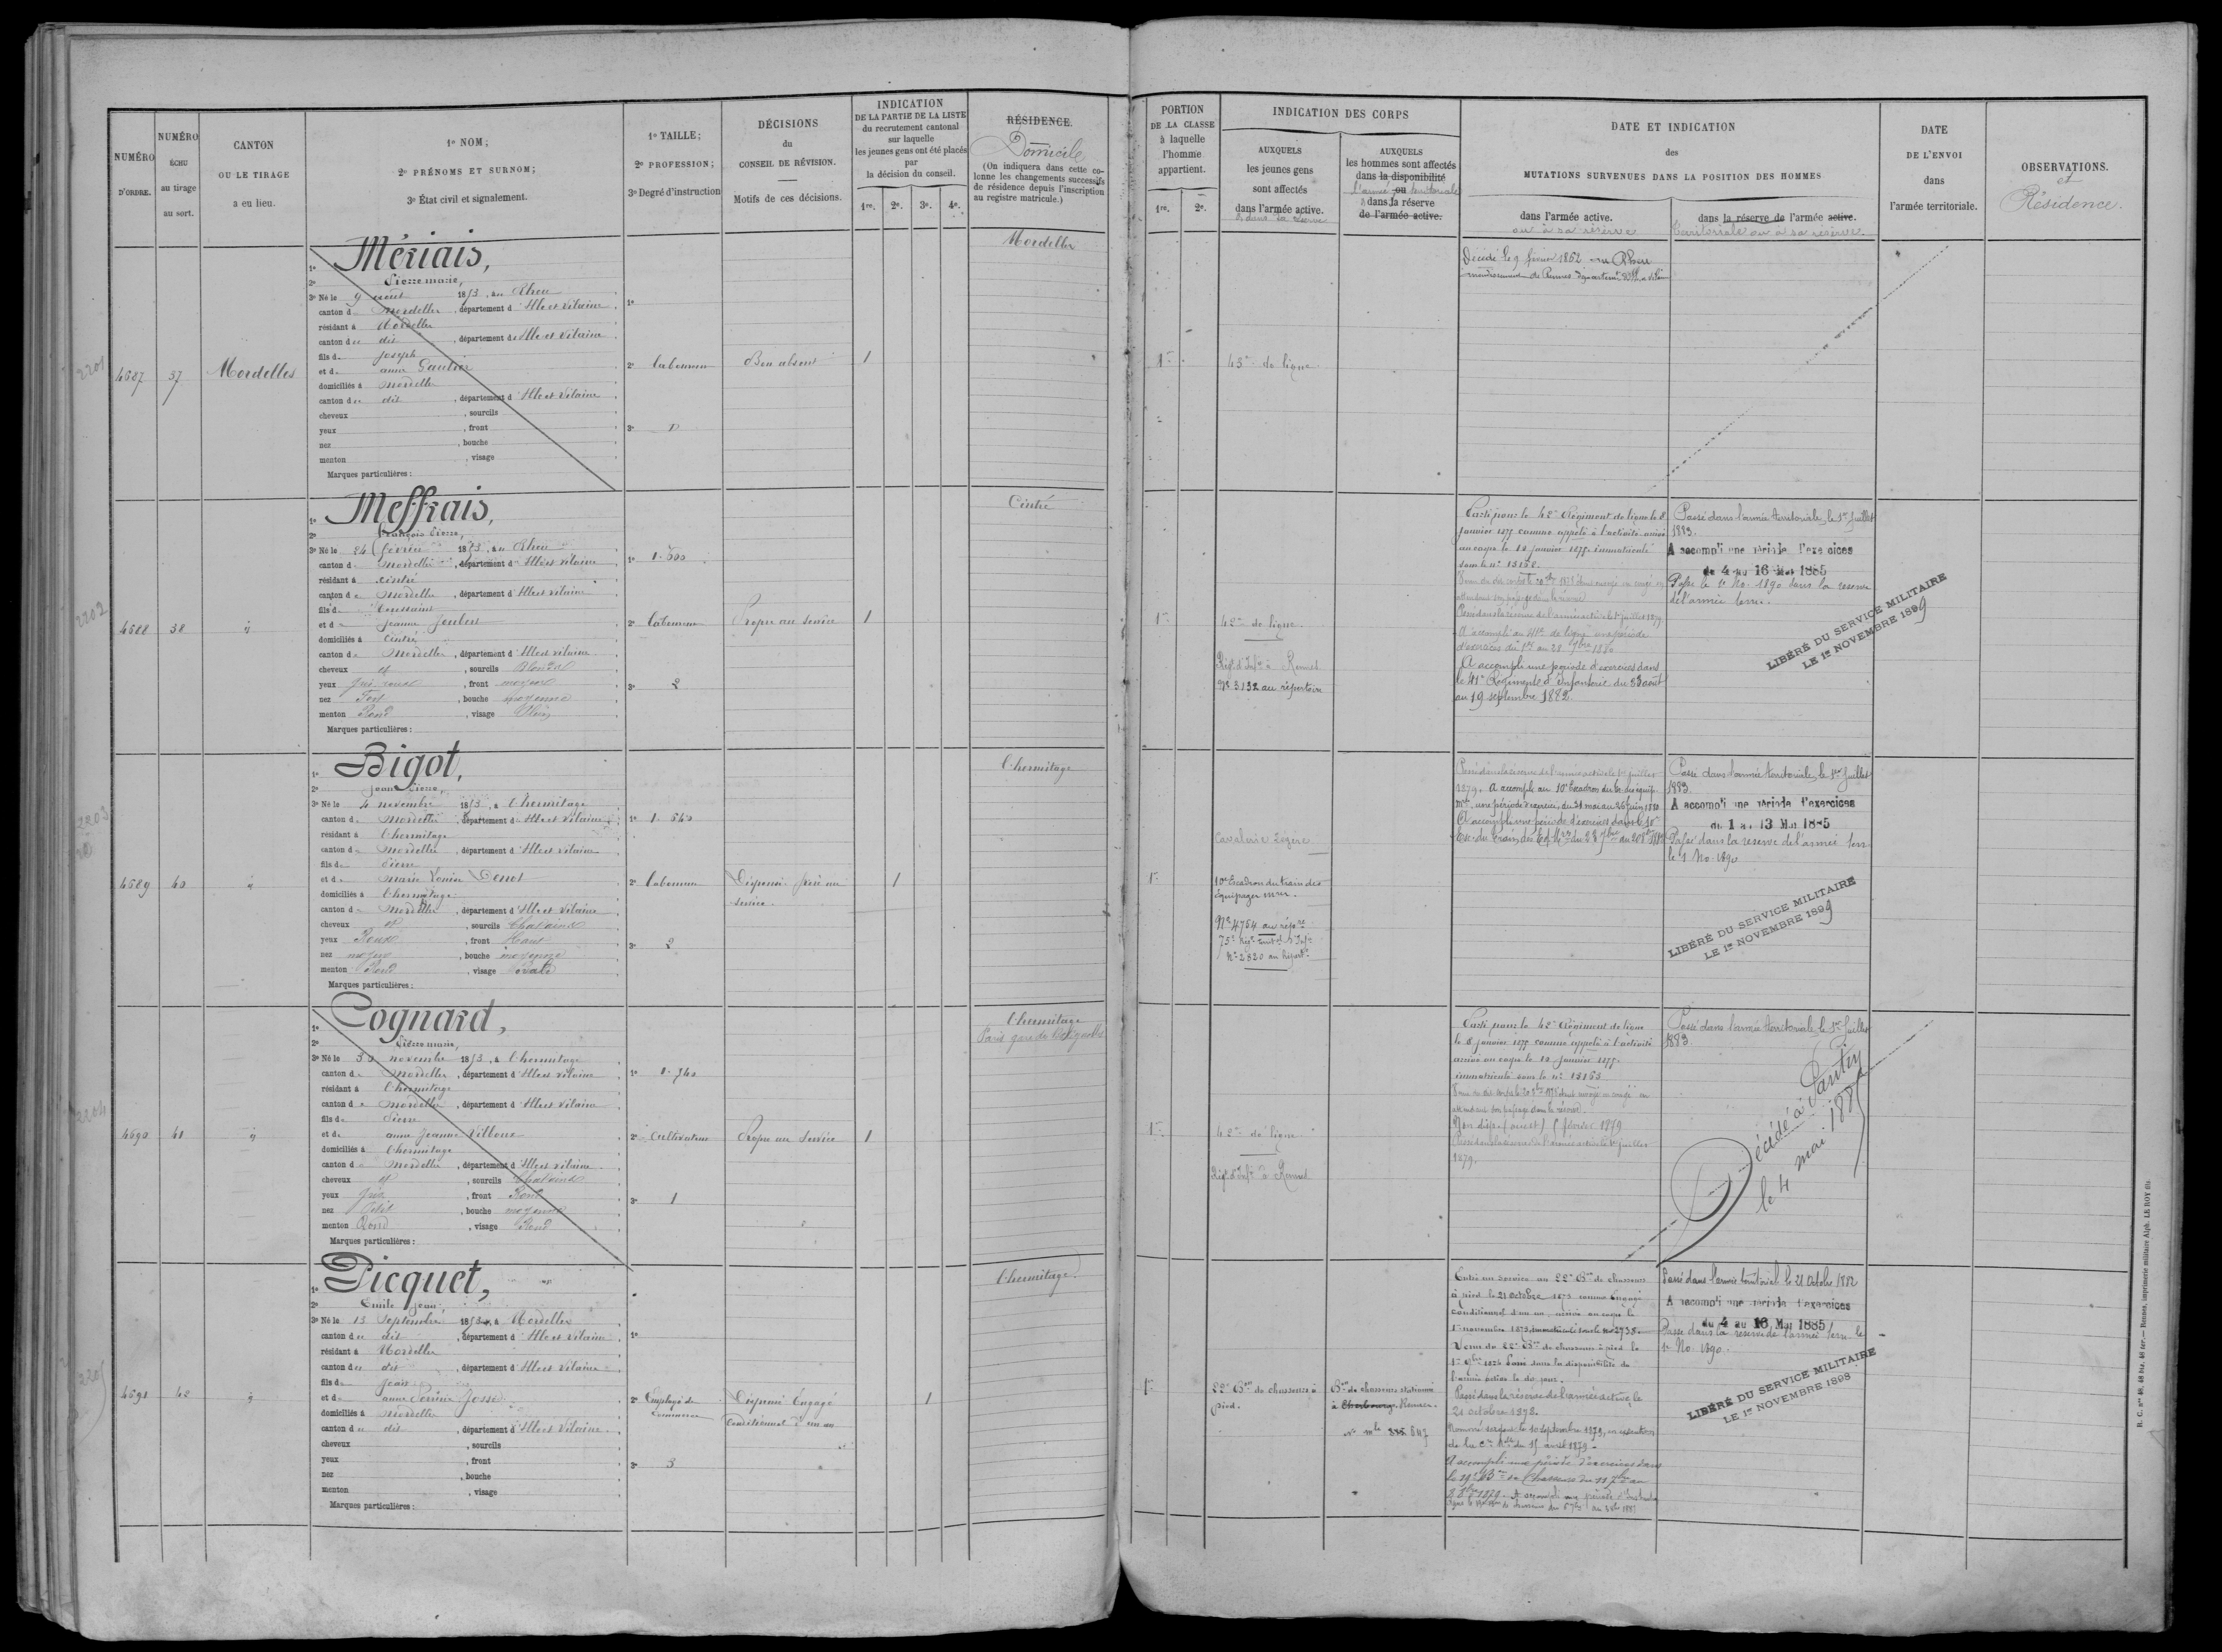 NUMÉRO D'ORDRE.
NUMÉRO ÉCHU au tirage au sort.
CANTON OU LE TIRAGE a eu lieu.
1º NOM;
2º PRÉNOMS ET SURNOM;
3º État civil et signalement.
1º TAILLE;
2º PROFESSION;
3º Degré d'instruction
DÉCISIONS
du
CONSEIL DE RÉVISION.
Motifs de ces décisions.
INDICATION
DE LA PARTIE DE LA LISTE
du recrutement cantonal
sur laquelle
les jeunes gens ont été placés
par
la décision du conseil.
1re. 2e. 3e. 4e.
RÉSIDENCE.
Domicile
(On indiquera dans cette co-
lonne les changements successifs
de résidence depuis l'inscription
au registre matricule.)
PORTION
DE LA CLASSE
à laquelle
l'homme
appartient.
1re. 2e.
INDICATION DES CORPS
AUXQUELS
les jeunes gens
sont affectés
dans l'armée active.
& dans sa réserve
AUXQUELS
les hommes sont affectés
dans la disponibilité
l'armée ou territoriale
& dans la réserve
de l'armée active.
DATE ET INDICATION
des
MUTATIONS SURVENUES DANS LA POSITION DES HOMMES
dans l'armée active.
ou à sa réserve
dans la réserve de l'armée active.
territoriale ou à sa réserve.
DATE
DE L'ENVOI
dans
l'armée territoriale.
OBSERVATIONS.
et
Résidence.
2201
4687
37
Mordelles
1º Mériais,
2º Pierre marie,
3º Né le 9 aout 1853, au Rheu
canton de Mordelles, département d'Ille et Vilaine
résidant à Mordelles
canton du dit, département d'Ille et Vilaine
fils de Joseph
et de anne Gautier
domiciliés à Mordelles
canton du dit, département d'Ille et Vilaine
cheveux , sourcils
yeux , front
nez , bouche
menton , visage
Marques particulières :
1º
2º laboureur
3º D
Bon absent
1
Mordelles
1re
43e de ligne
Décédé le 9 février 1862 au Rheu
arrondissement de Rennes département d'Ille et Vilaine
2202
4688
38
1º Meffrais,
2º François Pierre,
3º Né le 24 février 1853, au Rheu
canton de Mordelles, département d'Ille et Vilaine
résidant à Cintré
canton de Mordelles, département d'Ille et Vilaine
fils de Toussaint
et de Jeanne
domiciliés à Cintré
canton de Mordelles, département d'Ille et Vilaine
cheveux et, sourcils Blonds
yeux Gris roux, front moyen
nez Fort, bouche moyenne
menton Rond, visage Plein
Marques particulières :
1º
2º laboureur
3º 2
Propre au service
1
Cintré
1re
42e de ligne
Régt d'Infie à Rennes
Nº 3132 au répertoire
Parti pour le 42e Régiment de ligne le 8
janvier 1875 comme appelé à l'activité arrivé
au corps le 10 janvier 1875. immatriculé
sous le nº 13158.
Passé dans la réserve de l'armée active le 1er juillet 1879
A accompli au 41e de ligne une période
d'exercices du 1er au 28 7bre 1880
A accompli une période d'exercices dans
le 41e Régiment d'Infanterie du 23 août
au 19 septembre 1882.
Passé dans l'armée territoriale, le 1er Juillet
1883.
A accompli une période d'exercices
du 4 au 16 Mai 1885
Passé le 1er No. 1890 dans la réserve
de l'armée terre.
LIBÉRÉ DU SERVICE MILITAIRE
LE 1er NOVEMBRE 1899
2203
4689
40
1º Bigot,
2º Jean Pierre,
3º Né le 4 novembre 1853, à l'hermitage
canton de Mordelles, département d'Ille et Vilaine
résidant à l'hermitage
canton de Mordelles, département d'Ille et Vilaine
fils de Pierre
et de Marie Louise
domiciliés à l'hermitage
canton de Mordelles, département d'Ille et Vilaine
cheveux et, sourcils Chatains
yeux Roux, front Haut
nez moyen, bouche moyenne
menton Rond, visage Ovale
Marques particulières :
1º 1.640
2º laboureur
3º 2
Dispensé frère au
service.
1
l'hermitage
1re
Cavalerie légère
10e Escadron du train des
équipages mres.
Nº 4764 au répre
75e Régt territl d'Infie
Nº 2820 au répertre
Passé dans la réserve de l'armée active le 1er juillet
1879. A accompli au 10e Escadron du tr. des équip.
mres, une période d'exercices, du 31 mai au 26 juin 1880
A accompli une période d'exercices dans le 10e
Passé dans l'armée territoriale, le 1er Juillet
1883
A accompli une période d'exercices
du 1 au 13 Mai 1885
Passé dans la réserve de l'armée terr
le 1 No. 1890
LIBÉRÉ DU SERVICE MILITAIRE
LE 1er NOVEMBRE 1899
2204
4690
41
1º Cognard,
2º Pierre marie,
3º Né le 30 novembre 1853, à l'hermitage
canton de Mordelles, département d'Ille et Vilaine
résidant à l'hermitage
canton de Mordelles, département d'Ille et Vilaine
fils de Pierre
et de anne Jeanne Vilboux
domiciliés à l'hermitage
canton de Mordelles, département d'Ille et Vilaine
cheveux et, sourcils Chatains
yeux Gris, front Rond
nez Petit, bouche moyenne
menton Rond, visage Rond
Marques particulières :
1º 1.740
2º Cultivateur
3º 1
Propre au service
1
l'hermitage
Paris gare de Batignolles
1re
42e de ligne
Régt d'Infie à Rennes
Parti pour le 42e Régiment de ligne
le 8 janvier 1875 comme appelé à l'activité
arrivé au corps le 10 janvier 1875.
immatriculé sous le nº 13163
Non disp. (ouest) 1 février 1879
Passé dans la réserve de l'armée active le 1er juillet
1879.
Passé dans l'armée territoriale, le 1er Juillet
1883.
Décédé à Pantin
le 4 mai 1885
2205
4691
42
1º Picquet,
2º Emile Jean,
3º Né le 13 Septembre 1853, à Mordelles
canton du dit, département d'Ille et Vilaine
résidant à Mordelles
canton du dit, département d'Ille et Vilaine
fils de Jean
et de anne Perrine Josse
domiciliés à Mordelles
canton du dit, département d'Ille et Vilaine
cheveux , sourcils
yeux , front
nez , bouche
menton , visage
Marques particulières :
1º
2º Employé de
commerce
3º 3
Dispensé Engagé
Conditionnel d'un an
1
l'hermitage
1re
22e Bon de chasseurs à
pied.
Bon de chasseurs stationné
à Cherbourg. Rennes.
Nº mle 835 847
Entré au service au 22e Bon de chasseurs
à pied le 21 octobre 1873 comme Engagé
conditionnel d'un an, arrivé au corps le
1er novembre 1873, immatriculé sous le nº 2738.
Venu du 22e Bon de chasseurs à pied le
1er 9bre 1874 Passé dans la disponibilité de
l'armée active le dit jour.
Passé dans la réserve de l'armée active le
21 octobre 1878.
Nommé sergent le 10 septembre 1879, en exécution
de la Cre Mlle du 15 avril 1879.
A accompli une période d'exercices dans
le 19e Bon de Chasseurs du 11 7bre au
Passé dans l'armée territoriale le 21 Octobre 1882
A accompli une période d'exercices
du 4 au 16 Mai 1885
Passé dans la réserve de l'armée terr. le
1er No. 1890.
LIBÉRÉ DU SERVICE MILITAIRE
LE 1er NOVEMBRE 1898
R. C. nos 40, 46 bis, 46 ter. — Rennes, imprimerie militaire Alph. LE ROY fils.